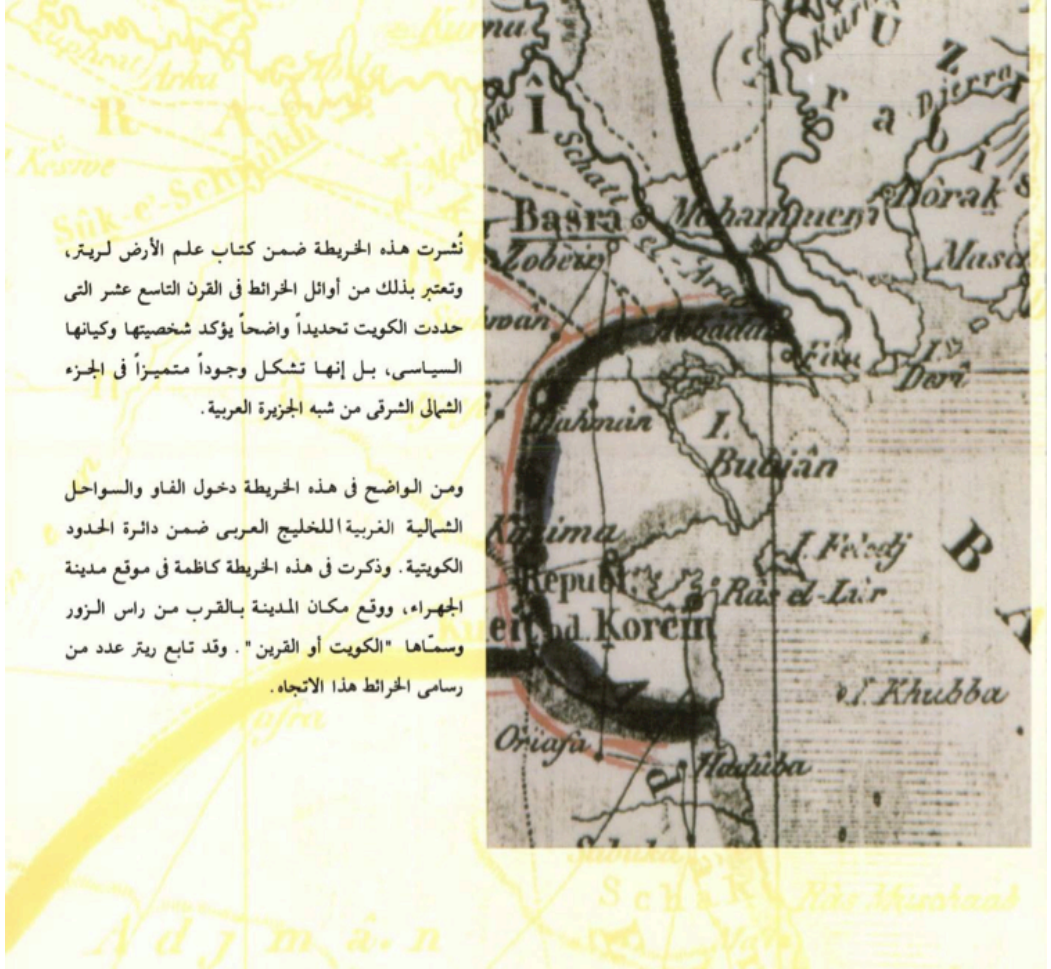 نُشرت هذه الخريطة ضمن كتاب علم الأرض لريتر،
وتعتبر بذلك من أوائل الخرائط فى القرن التاسع عشر التى
حددت الكويت تحديداً واضحاً يؤكد شخصيتها وكيانها
السياسى، بل إنها تشكل وجوداً متميزاً فى الجزء
الشمالى الشرقى من شبه الجزيرة العربية.
ومن الواضح فى هذه الخريطة دخول الفاو والسواحل
الشمالية الغربية للخليج العربى ضمن دائرة الحدود
الكويتية. وذكرت فى هذه الخريطة كاظمة فى موقع مدينة
الجهراء، ووقع مكان المدينة بالقرب من راس الزور
وسمّاها "الكويت أو القرين". وقد تابع ريتر عدد من
رسامى الخرائط هذا الاتجاه.
Kurnu
Arka
R A
Kesme
Sûk-e'-Schujûkh
Î
Schatt
el-Arab
Basra
Mohammera
Dôrak
Djerra
Zobeir
Fau
I. Derî
I. Bubjân
I. Feledj
Republ.
Râs el-Lûr
Kueit od. Korein
I. Khubba
Oriafa
Hadûba
B
A
P
Schak
Adjmân